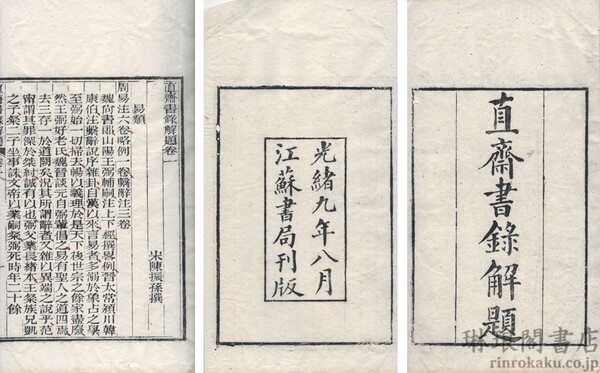 直齋書錄解題
光緒九年八月
江蘇書局刊版
直齋書錄解題卷一
宋陳振孫撰
易類
周易注六卷略例一卷繫辭注三卷
魏尚書郎山陽王弼輔嗣注上下經撰略例晉太常潁川韓
康伯注繫辭說序雜卦自漢以來言易者多溺於象占之學
至弼始一切掃去暢以義理於是天下後世宗之餘家盡廢
然王弼好老氏魏晉談元自弼輩倡之易有聖人之道四焉
去三存一於道闕矣況其所謂辭者又雜以異端之說乎范
甯謂其罪深於桀紂誠有以也弼父業長緒本王粲族兄凱
之子粲二子坐事誅文帝以業嗣粲弼死時年二十餘
琳琅閣書店
rinrokaku.co.jp